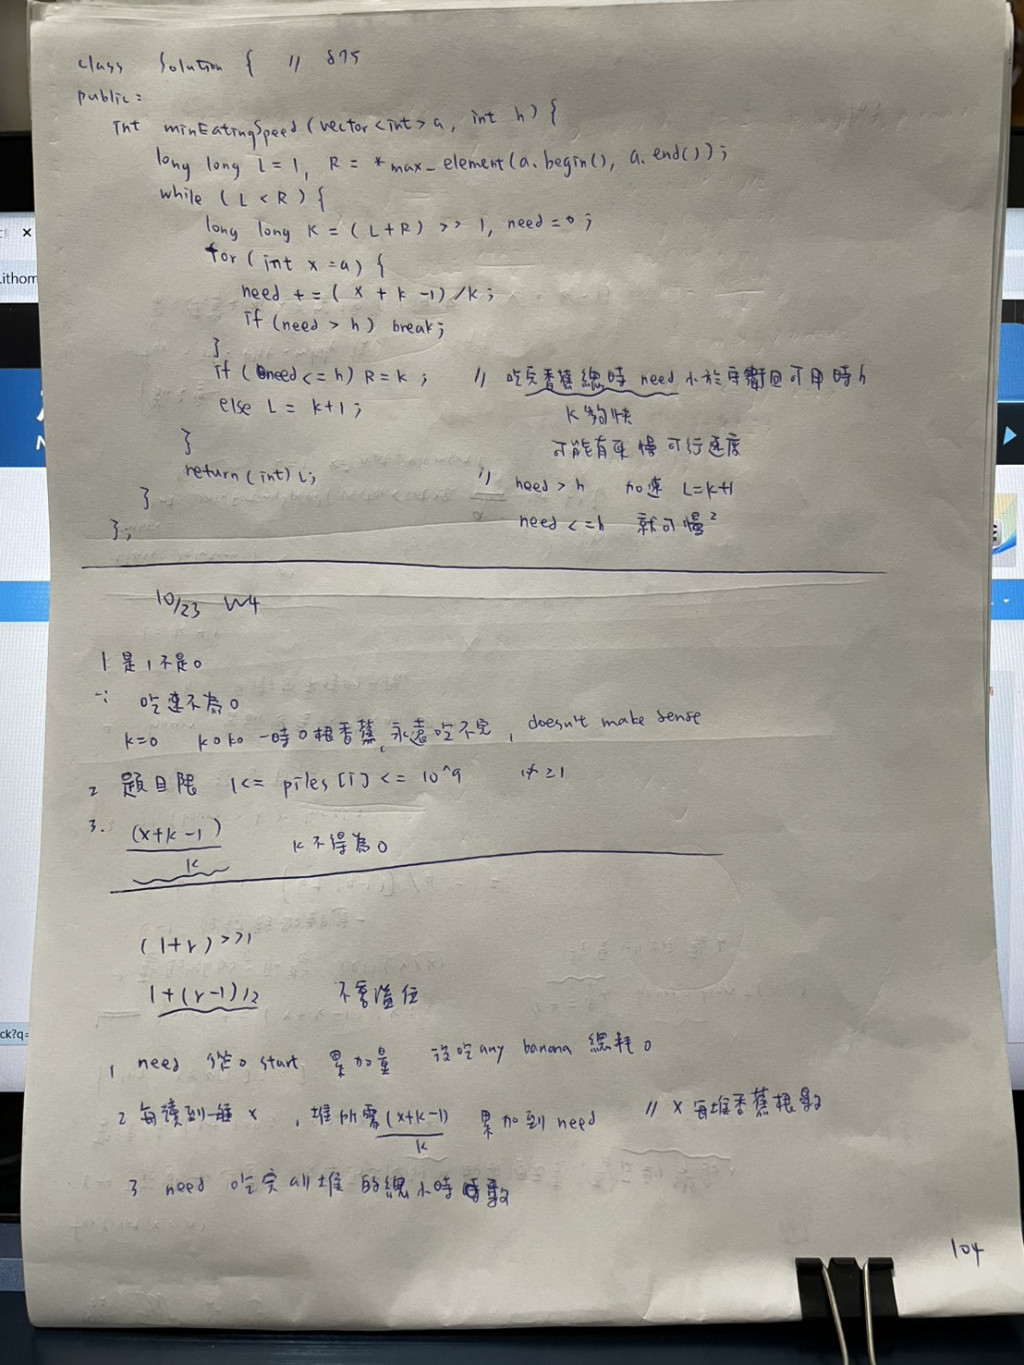 class Solution { // 875
public:
int minEatingSpeed(vector<int>a, int h) {
long long L=1, R = *max_element(a.begin(), a.end());
while (L<R){
long long K = (L+R) >> 1, need=0;
for (int x=a) {
need += (x+k-1)/k;
if (need > h) break;
}
if (need<=h) R=k; // 吃完香蕉總時 need 小於守衛回可用時h
else L = k+1; K夠快
} 可能有更慢可行速度
return(int) L; // need>h 加速 L=k+1
} need<=h 就可慢²
};
10/23 W4
1 是1不是0
∵ 吃速不為0
k=0 koko 一時0根香蕉,永遠吃不完, doesn't make sense
2 題目限 1<= piles[i] <= 10^9 ≥1
3. (x+k-1)
k k不得為0
(l+r)>>1
l+(r-l)/2 不會溢位
1 need 從0 start 累加量 沒吃any banana 總耗0
2 每讀到一堆x, 堆所需(x+k-1) 累加到need // x每堆香蕉根數
k
3 need 吃完all堆的總小時數
104
ithom
ck?q=